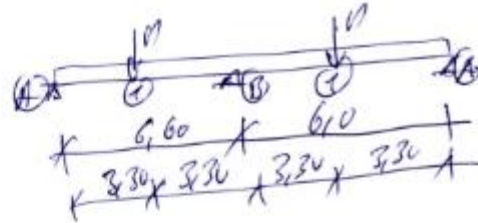 A 1 B 1 A
6,60 6,0
3,30 3,30 3,30 3,30